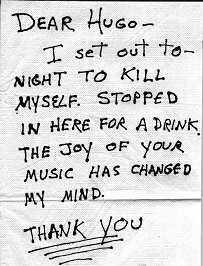 DEAR HUGO—
I set out to-
NIGHT TO KILL
MYSELF. STOPPED
IN HERE FOR A DRINK.
THE JOY OF YOUR
MUSIC HAS CHANGED
MY MIND.
THANK YOU